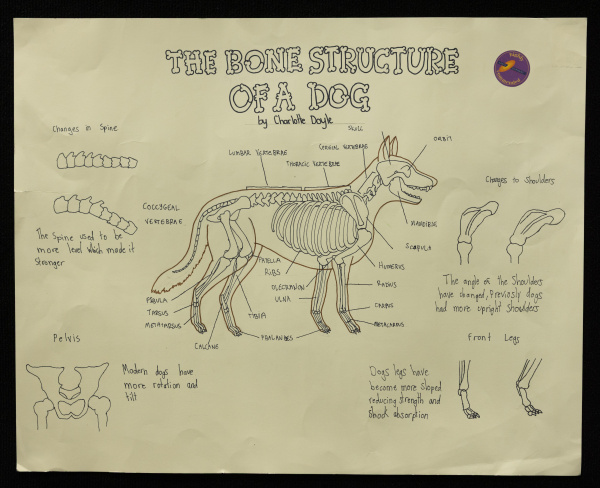 THE BONE STRUCTURE
OF A DOG
by Charlotte Doyle
Changes in Spine
The Spine used to be
more level which made it
stronger
Pelvis
Modern dogs have
more rotation and
tilt
SKULL
CERVICAL VERTEBRAE
LUMBAR VERTEBRAE
THORACIC VERTEBRAE
ORBIT
COCCYGEAL
VERTEBRAE
MANDIBLE
SCAPULA
HUMERUS
PATELLA
RIBS
OLECRANON
ULNA
RADIUS
CARPUS
METACARPUS
FIBULA
TARSUS
METATARSUS
TIBIA
PHALANGES
Changes to Shoulders
The angle of the Shoulders
have changed, Previosly dogs
had more upright Shoulders
Front Legs
Dogs legs have
become more Sloped
reducing strength and
shock absorption